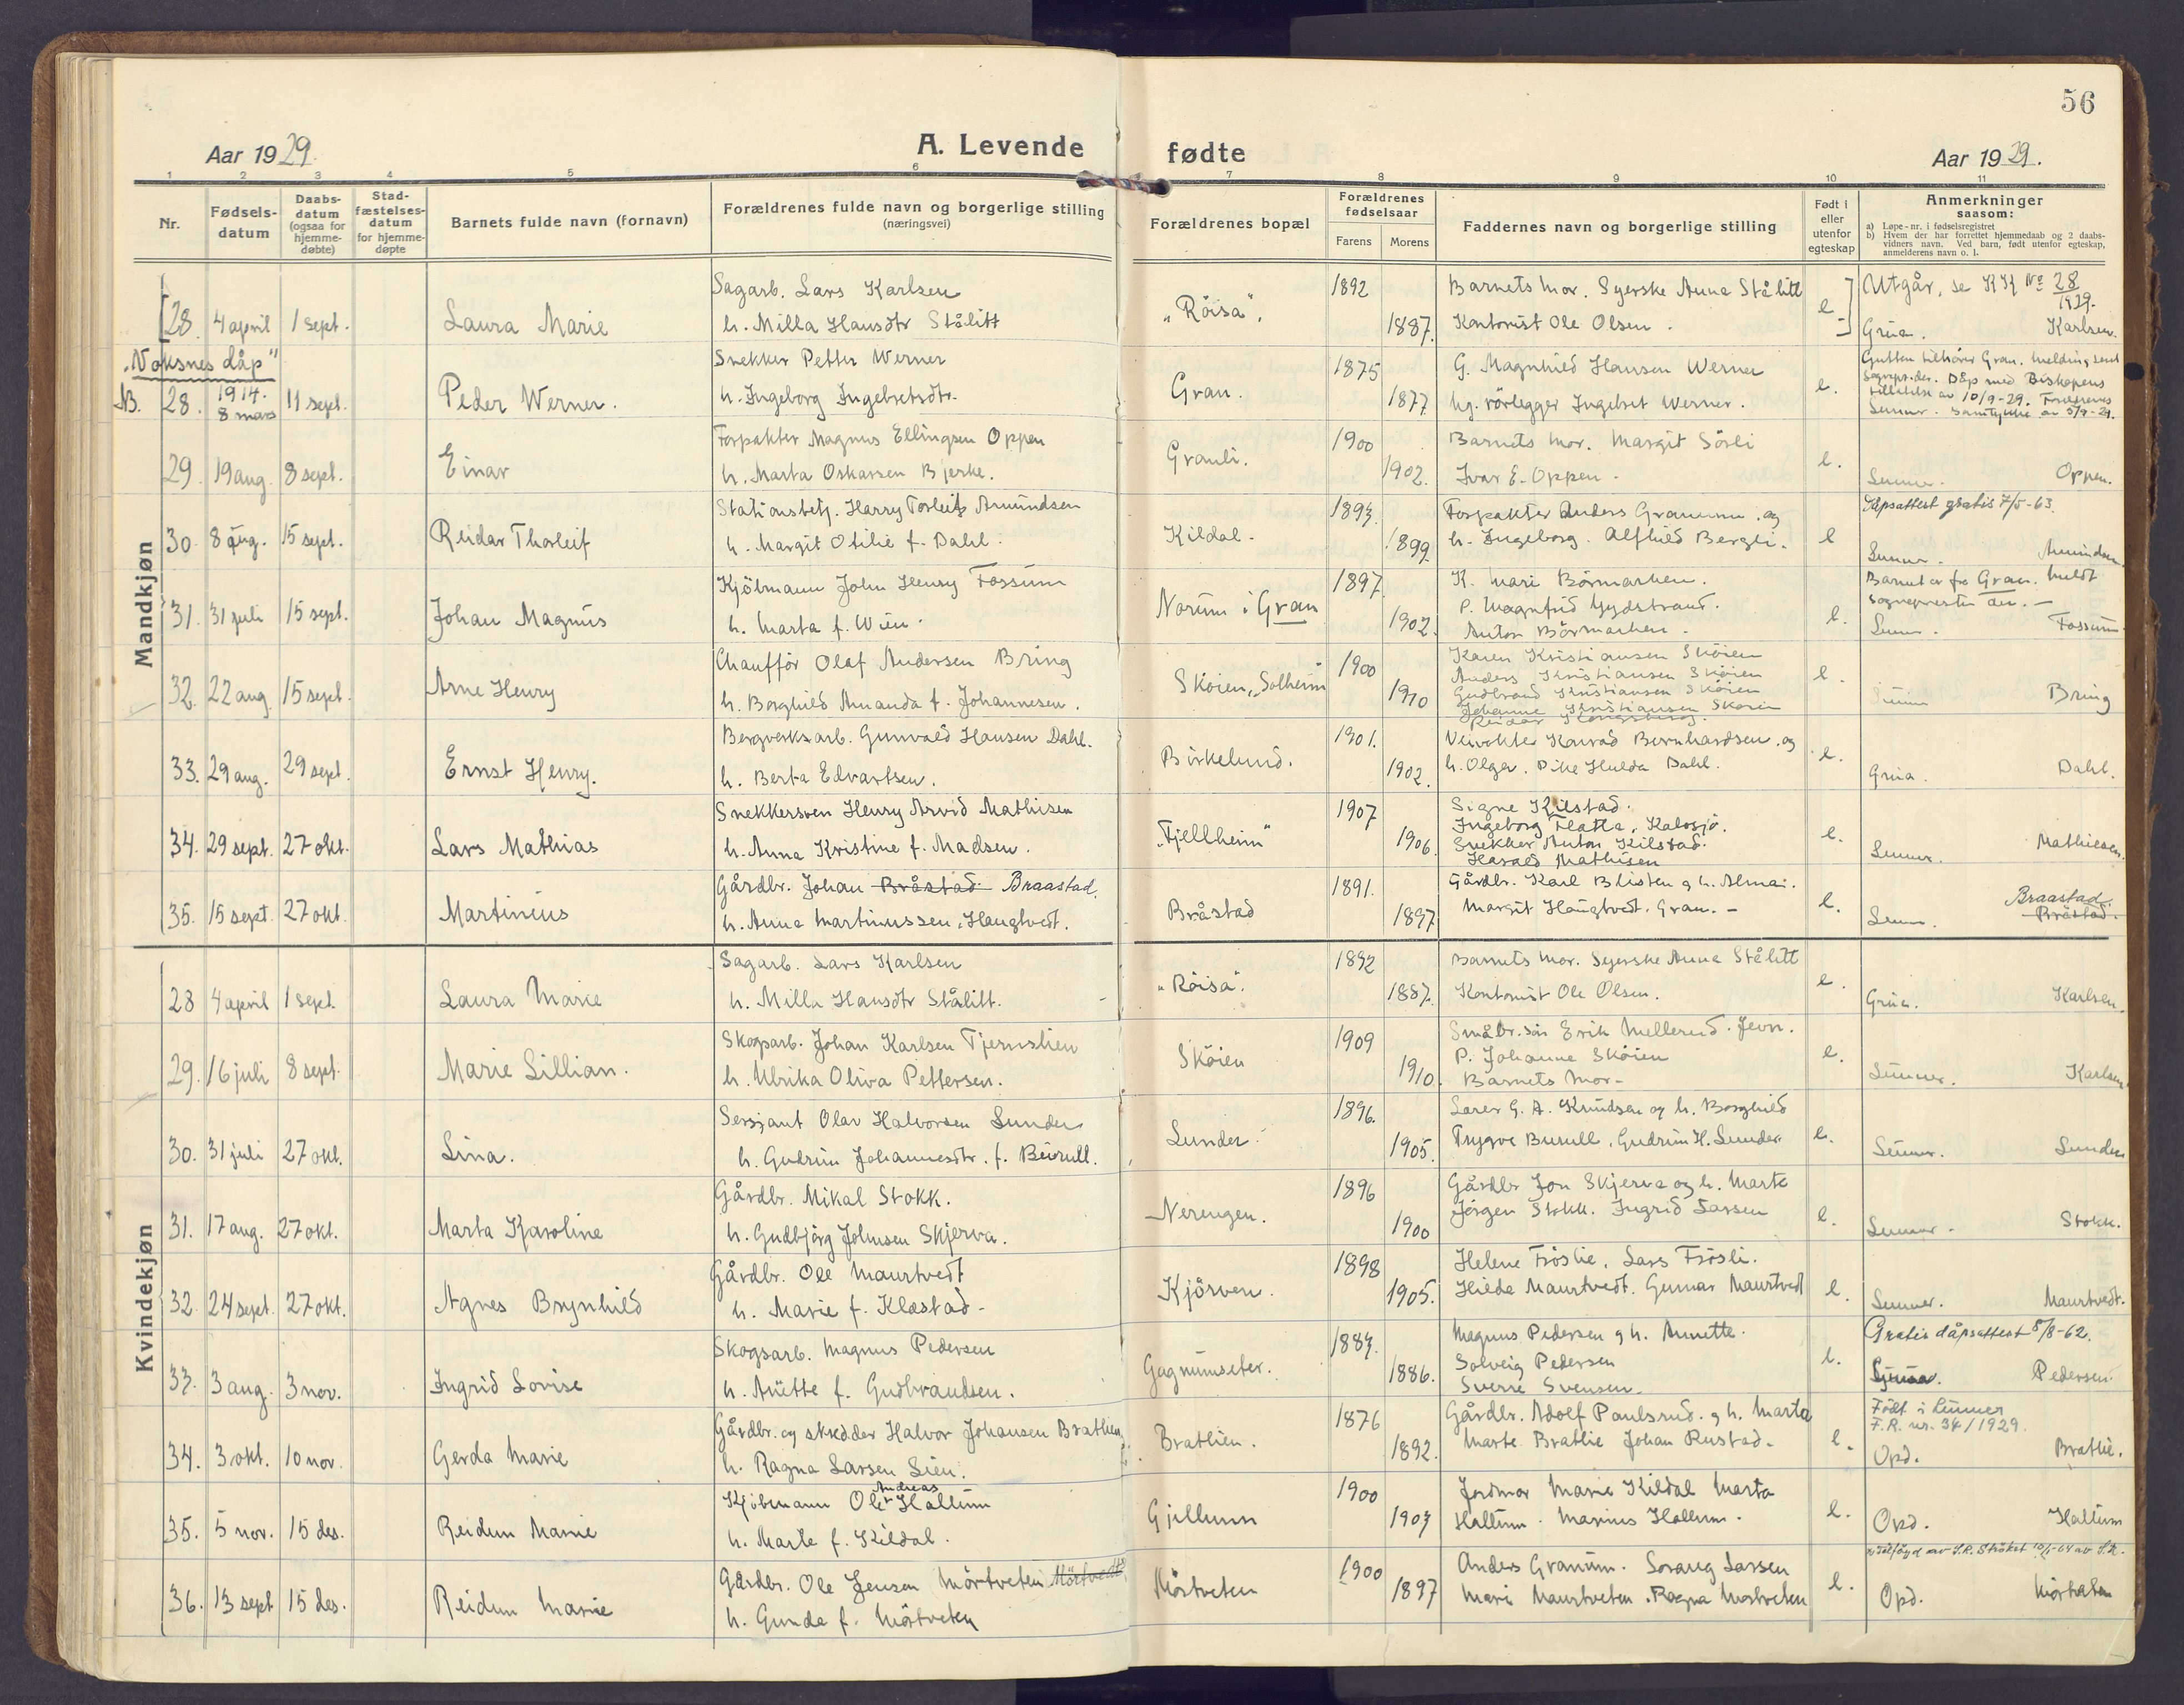 56
Aar 1929.
A. Levende
fødte
Aar 1929.
1 2 3 4 5 6 7 8 9 10 11
Nr.
Fødsels-
datum
Daabs-
datum
(ogsaa for
hjemme-
døbte)
Stad-
fæstelses-
datum
for hjemme-
døpte
Barnets fulde navn (fornavn)
Forældrenes fulde navn og borgerlige stilling
(næringsvei)
Forældrenes bopæl
Forældrenes
fødselsaar
Farens Morens
Faddernes navn og borgerlige stilling
Født i
eller
utenfor
egteskap
Anmerkninger
saasom:
a) Løpe-nr. i fødselsregistret
b) Hvem der har forrettet hjemmedaab og 2 daabs-
vidners navn. Ved barn, født utenfor egteskap,
anmelderens navn o. l.
Mandkjøn
[28 4 april 1 sept. Laura Marie
Sagarb. Lars Karlsen
h. Milla Hansdtr Stålitt
"Röisa". 1892 1887.
Barnets mor. Syerske Anna Stålitt
Kontorist Ole Olsen.
e.
Utgår, se KK No 28
1929.
Grua. Karlsen.
"Voksnes dåp"
NB. 28. 1914. 8 mars 11 sept. Peder Werner.
Snekker Petter Werner
h. Ingeborg Ingebretsdtr.
Gran. 1875 1877
G. Magnhild Hansen Werner
hg. rörlegger Ingebret Werner.
e.
Gutten tilhörer Gran. Melding sent
Sogneps. der. Dåp med Biskopens
tillatelse av 10/9-29. Foreldrenes
Lunner. samtykke av 5/9-29.
29. 19 aug. 8 sept. Einar
Forpakter Magnus Ellingsen Oppen
h. Marta Oskarsen Bjerke.
Granli. 1900 1902.
Barnets mor. Margit Sörli
Ivar E. Oppen.
e.
Lunner. Oppen.
30. 8 aug. 15 sept. Reidar Thorleif
Stationsbetj. Harry Torleif Amundsen
h. Margit Otilie f. Dahl.
Kildal. 1893. 1899.
Forpakter Anders Granum. og
h. Ingeborg. Alfhild Bergli.
e
Dåpsattest gratis 7/5-63.
Lunner. Amundsen
31. 31 juli 15 sept. Johan Magnus
Kjöbmann John Henry Fossum
h. Marta f. Wien.
Norum i Gran 1897. 1902.
K. Mari Börmarken.
P. Magnfrid Gydstrand.
Anton Börmarken.
e.
Barnet er fra Gran. Meldt
sognepresten der. —
Lunner. Fossum
32. 22 aug. 15 sept. Arne Henry
Chaufför Olaf Andersen Bring
h. Borghild Amanda f. Johannesen.
Sköien, "Solheim" 1900 1910
Karen Kristiansen Sköien
Anders Kristiansen Sköien
Gudbrand Kristiansen Sköien
Johanne Kristiansen Sköien
Reidar Kongsberg.
e.
Lunner Bring
33. 29 aug. 29 sept. Ernst Henry.
Bergverksarb. Gunvald Hansen Dahl.
h. Berta Edvartsen.
Birkelund. 1901. 1902.
Veivokter Konrad Bernhardsen. og
h. Olga. Pike Hulda Dahl.
e.
Grua. Dahl.
34. 29 sept. 27 okt. Lars Mathias
Snekkersven Henry Arvid Mathisen
h. Anna Kristine f. Madsen.
"Fjellheim" 1907 1906.
Signe Kilstad.
Ingeborg Flatla, Kalosjö.
Snekker Anton Kilstad.
Harald Mathisen
e.
Lunner. Mathiesen.
35. 15 sept. 27 okt. Martinius
Gårdbr. Johan Bråstad Braastad.
h. Anna Martinussen, Haugtvedt.
Bråstad 1891. 1897.
Gårdbr. Karl Blisten og h. Alma.
Margit Haugtvedt. Gran. -
e.
Lunn. Braastad. Bråstad.
Kvindekjøn
28 4 april 1 sept. Laura Marie
Sagarb. Lars Karlsen
h. Milla Hansdtr Stålitt.
"Röisa". 1892 1887.
Barnets mor. Syerske Anna Stålitt
Kontorist Ole Olsen.
e.
Grua. Karlsen.
29. 16 juli 8 sept. Marie Lillian.
Skogsarb. Johan Karlsen Tjernslien
h. Ulrika Oliva Pettersen.
Sköien 1909 1910.
Småbr.sön Erik Mellerud. Jevn.
P. Johanne Sköien
Barnets mor-
e.
Lunner. Karlsen
30. 31 juli 27 okt. Lina.
Sersjant Olav Halvorsen Lunder
h. Gudrun Johannesdtr. f. Burull.
Lunder. 1896. 1905.
Lærer G. A. Knudsen og h. Borghild
Trygve Burull, Gudrun H. Lunder
e.
Lunner. Lunder
31. 17 aug. 27 okt. Marta Karoline
Gårdbr. Mikal Stokk.
h. Gudbjörg Johnsen Skjerva.
Nerengen. 1896 1900
Gårdbr Jon Skjerva og h. Marte
Jörgen Stokk. Ingrid Larsen
e.
Lunner. Stokk.
32. 24 sept. 27 okt. Agnes Brynhild
Gårdbr. Ole Maurtvedt
h. Marie f. Klæstad-
Kjörven. 1898 1905.
Helene Fröslie, Lars Frösli.
Hilda Maurtvedt. Gunnar Maurtvedt
e.
Lunner. Maurtvedt.
33. 3 aug. 3 nov. Ingrid Lovise
Skogsarb. Magnus Pedersen
h. Anette f. Gudbrandsen.
Gagnumseter. 1884. 1886.
Magnus Pedersen og h. Annette.
Solveig Pedersen
Sverre Svensen.
e.
Gratis dåpsattest 8/8-62.
Pedersen.
34. 3 okt. 10 nov. Gerda Marie
Gårdbr. og skredder Halvor Johansen Brathien
h. Ragna Larsen Lien.
Brathien. 1876 1892.
Gårdbr. Adolf Paulsrud. og h. Marta
Marte Brathie Johan Rustad.
e.
Födt i Lunner
F.R. nr. 34/1929.
Opd. Brathie.
35. 5 nov. 15 des. Reidun Marie
Kjöbmann Ole Andreas Hallum
h. Marte f. Kildal.
Gjellum 1900 1904
Jordmor Marie Kildal Marta
Hallum. Marius Hallum.
e.
Opd. Hallum
36. 13 sept 15 des. Reidun Marie
Gårdbr. Ole Jensen Mörtveten Mörtvedt.
h. Gunda f. Mörtveten
Mörtveten 1900 1897
Anders Granum. Solaug Larsen
Mari Maurtveten. Ragna Mortveten
e.
Opd. Mörtveten